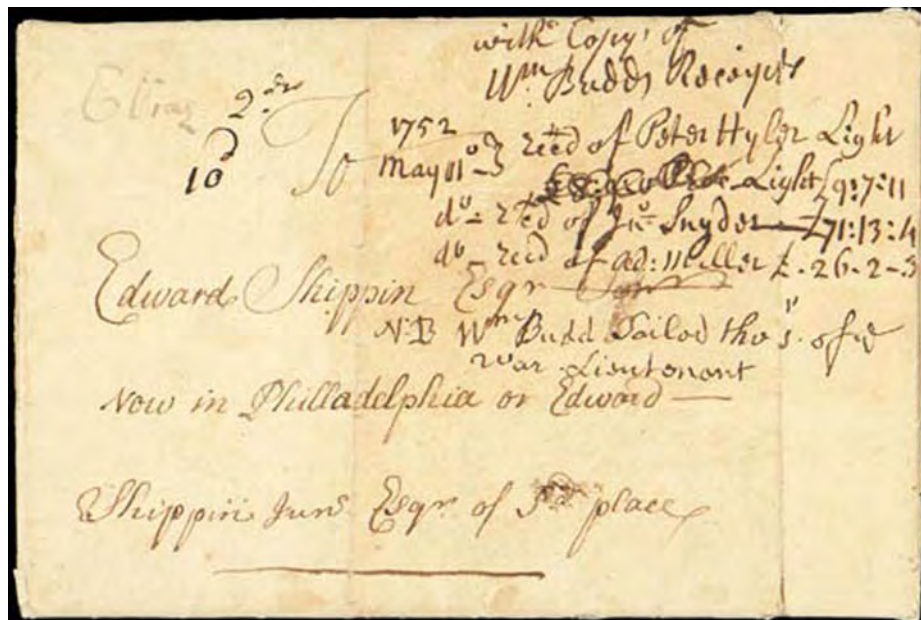 with Copy of
Wm Budds Receipts
2
10 To
1752
May 11 recd of Peter Hyler Light
Light £9:7:11
do recd of Jno Snyder £71:13:4
do recd of ad: Miller £.26.2-3
Edward Shippin Esqr
NB Wm Budd Sailed the
war Lieutenant
Now in Philladelphia or Edward
Shippin Junr Esqr of Sd place